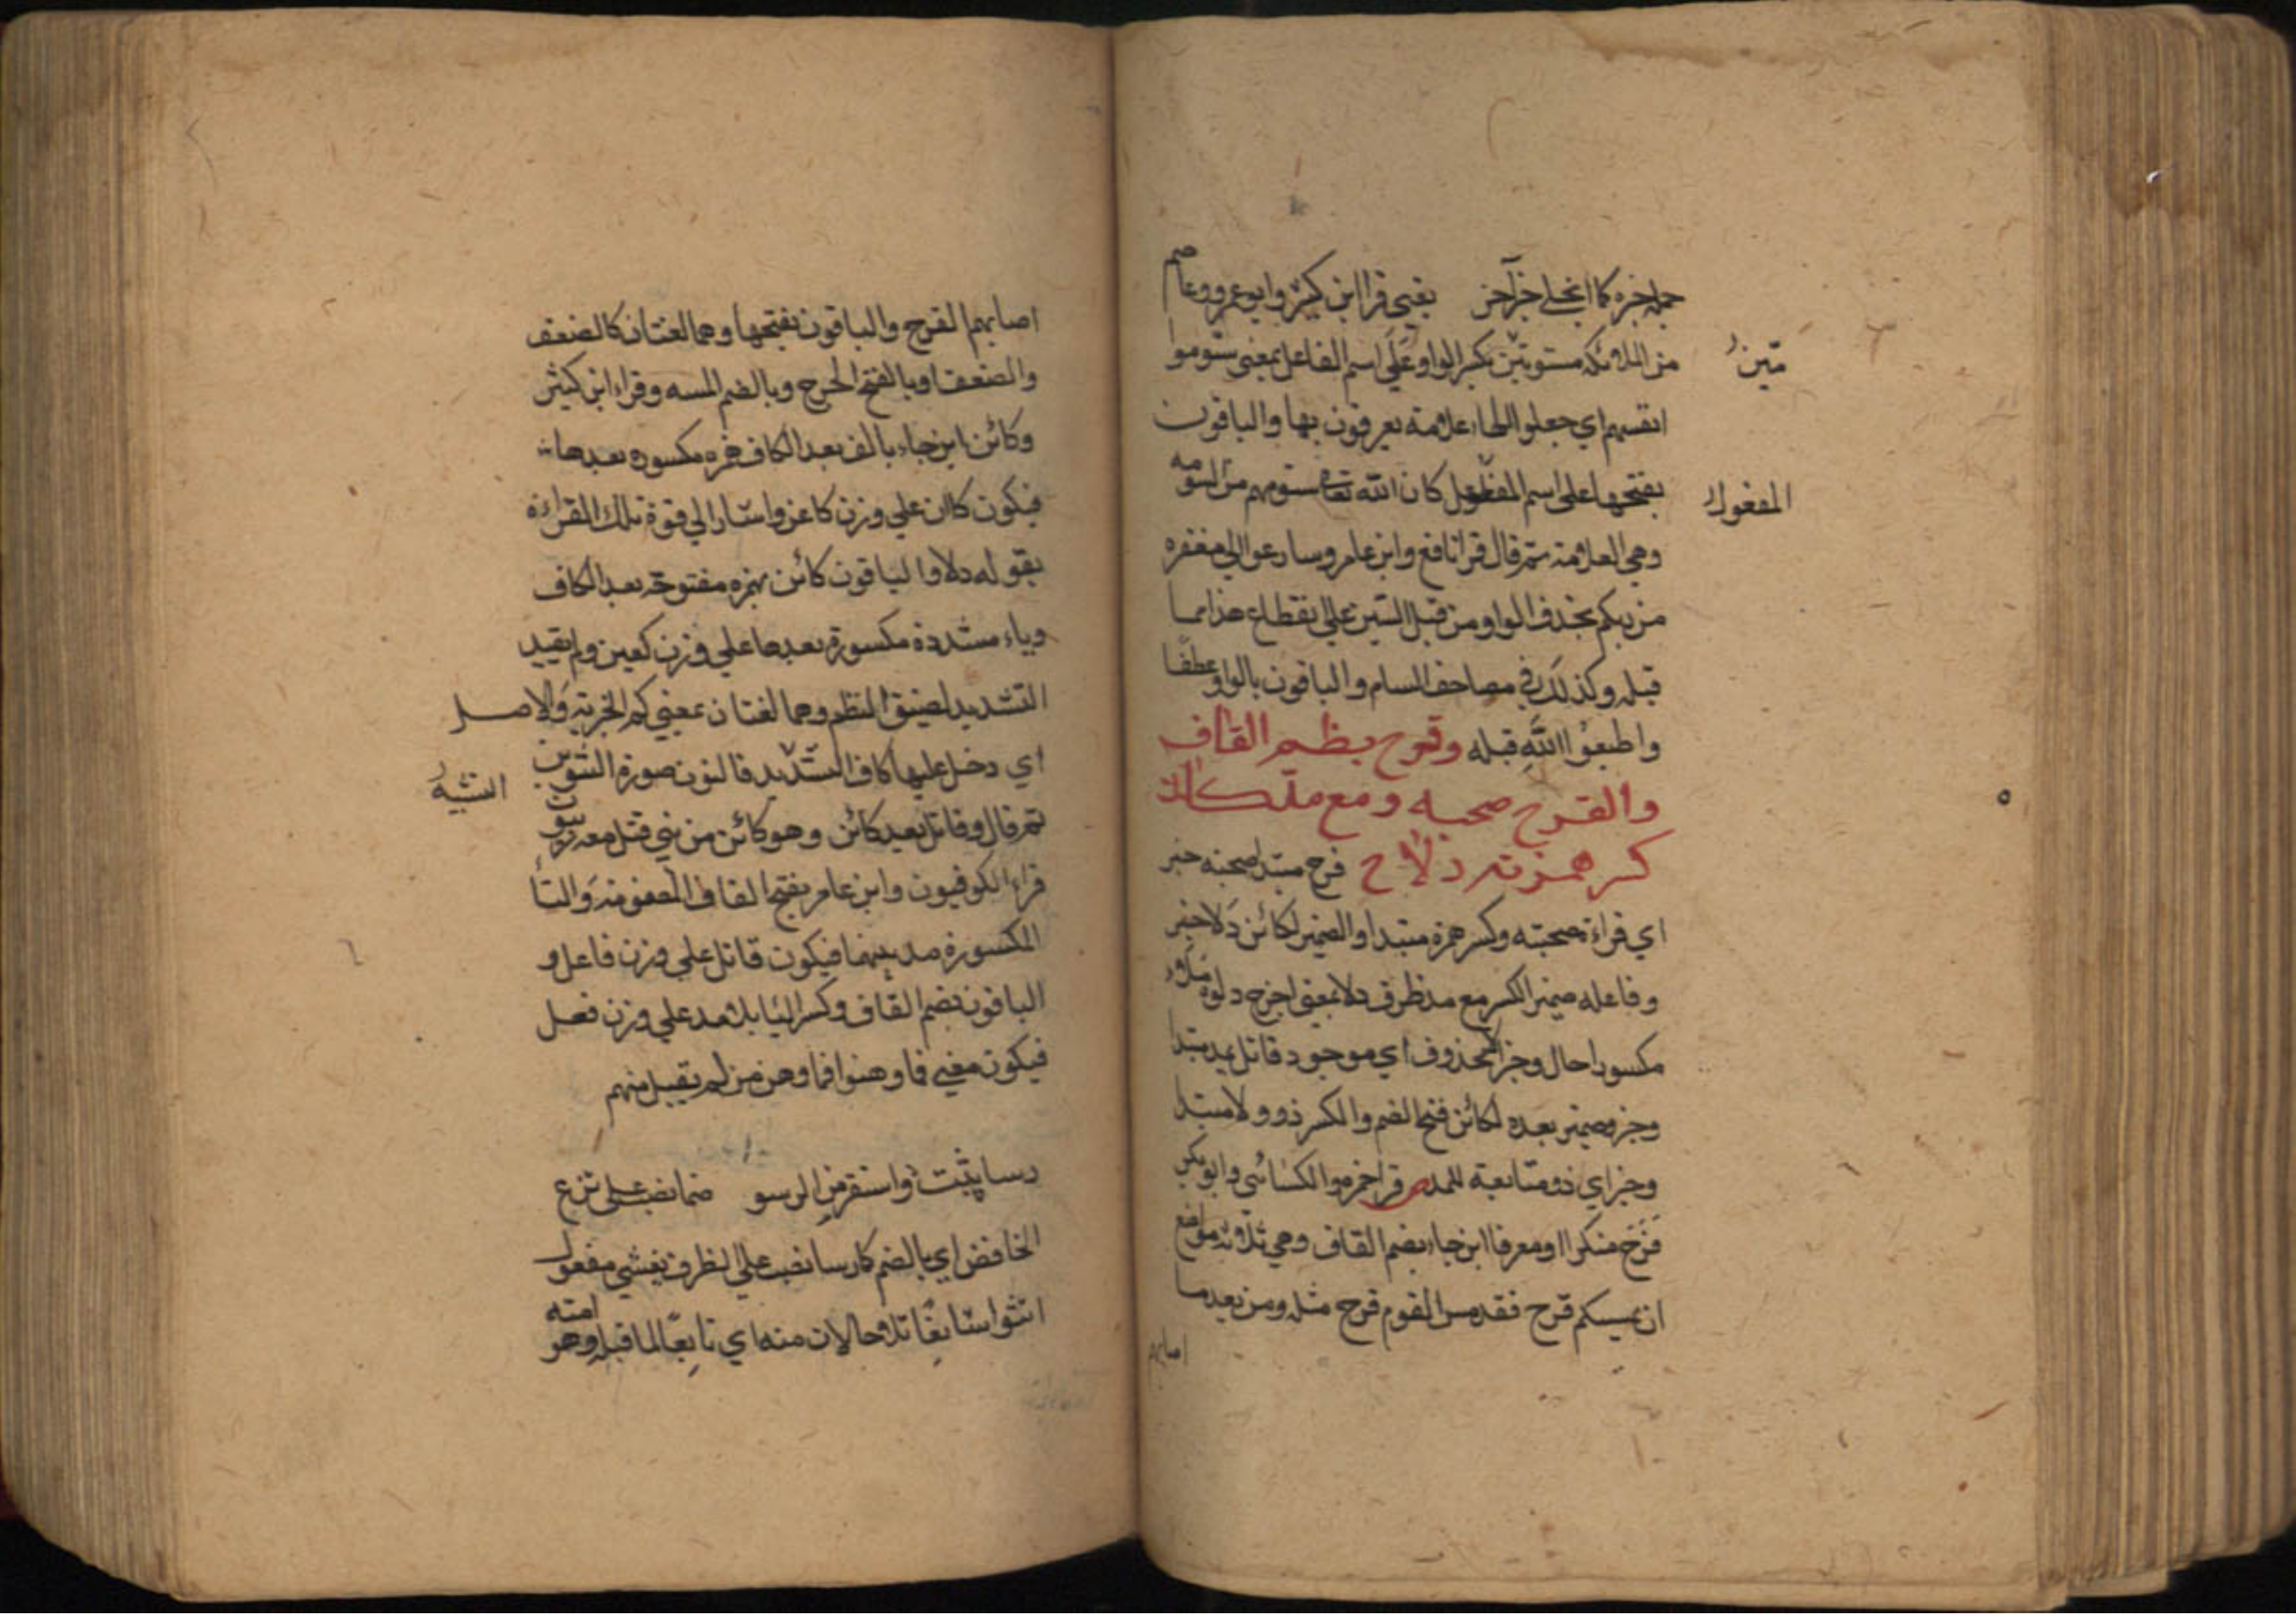 جملة خبره كما انجلى خبر آخر يعني قرا ابن كثير وابو عمرو وعاصم
من الملائكة مسومين بكسر الواو على اسم الفاعل بمعنى سوموا
مين
انفسهم اي جعلوا لها علامة يعرفون بها والباقون
بفتحها على اسم المفعول كان الله تعا سومهم من السومه
المفعول
وهي العلامة ثم قال قرا نافع وابن عامر وسارعوا الي مغفره
من ربكم بحذف الواو من قبل السين علي انقطاع هذا مما
قبله وكذلك في مصاحف الشام والباقون بالواو عطفا
واطيعوا الله قبله وقرح بظم القاف
والقرح صحبه ومع مد كائن
كسر همزته دلا ح قرح مبتدا صحبته خبر
اي قراءة صحبته وكسر همزة مبتدا والضمير لكائن دلا خبر
وفاعله ضمير الكسر مع مد ظرف دلا بمعنى اخرج دلوه
مكسورا حال وخبر محذوف اي موجود قاتل بعد مبتدا
وخبر وضمير بعده لكائن فتح الضم والكسر ذو ولا مبتدا
وخبر اي ذو متابعة للمد ص قرا حمزه والكسائي وابو بكر
قرح منكرا ومعرفا اين جاء بضم القاف وهي ثلاثة مواضع
ان يمسسكم قرح فقد مس القوم قرح مثله ومن بعد ما
اصابهم
اصابهم القرح والباقون بفتحها وهما لغتان كالضعف
والضعف او بالفتح الجرح وبالضم المسه وقراء ابن كثير
وكائن اين جاء بالف بعد الكاف همزه مكسوره بعدها
فيكون كاان علي وزن كاعن واشار الي قوة تلك القراءة
بقوله دلا والباقون كائن بهمزه مفتوحة بعد الكاف
وياء مشددة مكسورة بعدها علي وزن كعين ولم يقيد
التشديد لضيق النظم وهما لغتان بمعني كم الخبرية والاصل
اي دخل عليها كاف التشديد فالنون صورة التنوين
التشبيه
ثم قال وقاتل بعد كائن وهو كائن من نبي قتل معه ربيون
قراء الكوفيون وابن عامر بفتح القاف المضمومة والتا
المكسورة مد بينهما فيكون قاتل علي وزن فاعل و
الباقون بضم القاف وكسر التا بلا مد علي وزن فعل
فيكون معني فما وهنوا فما وهن من لم يقتل منهم
رسا يثبت واستقر من الرسو ضما نصب على نزع
الخافض اي بالضم كما رسا نصب علي الظرف يغشي مفعول
انثوا شايعا تلا حالان منه اي تابعا لما قبله وهو امنه